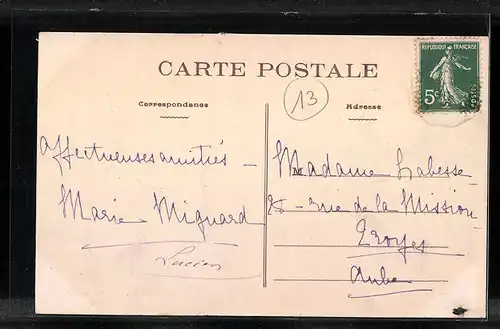 CARTE POSTALE
RÉPUBLIQUE FRANÇAISE
5c
POSTES
13
Correspondance
Adresse
Affectueuses amitiés —
Marie Mignard
Lucien
Madame Labesse
rue de la Mission
Troyes
Aube